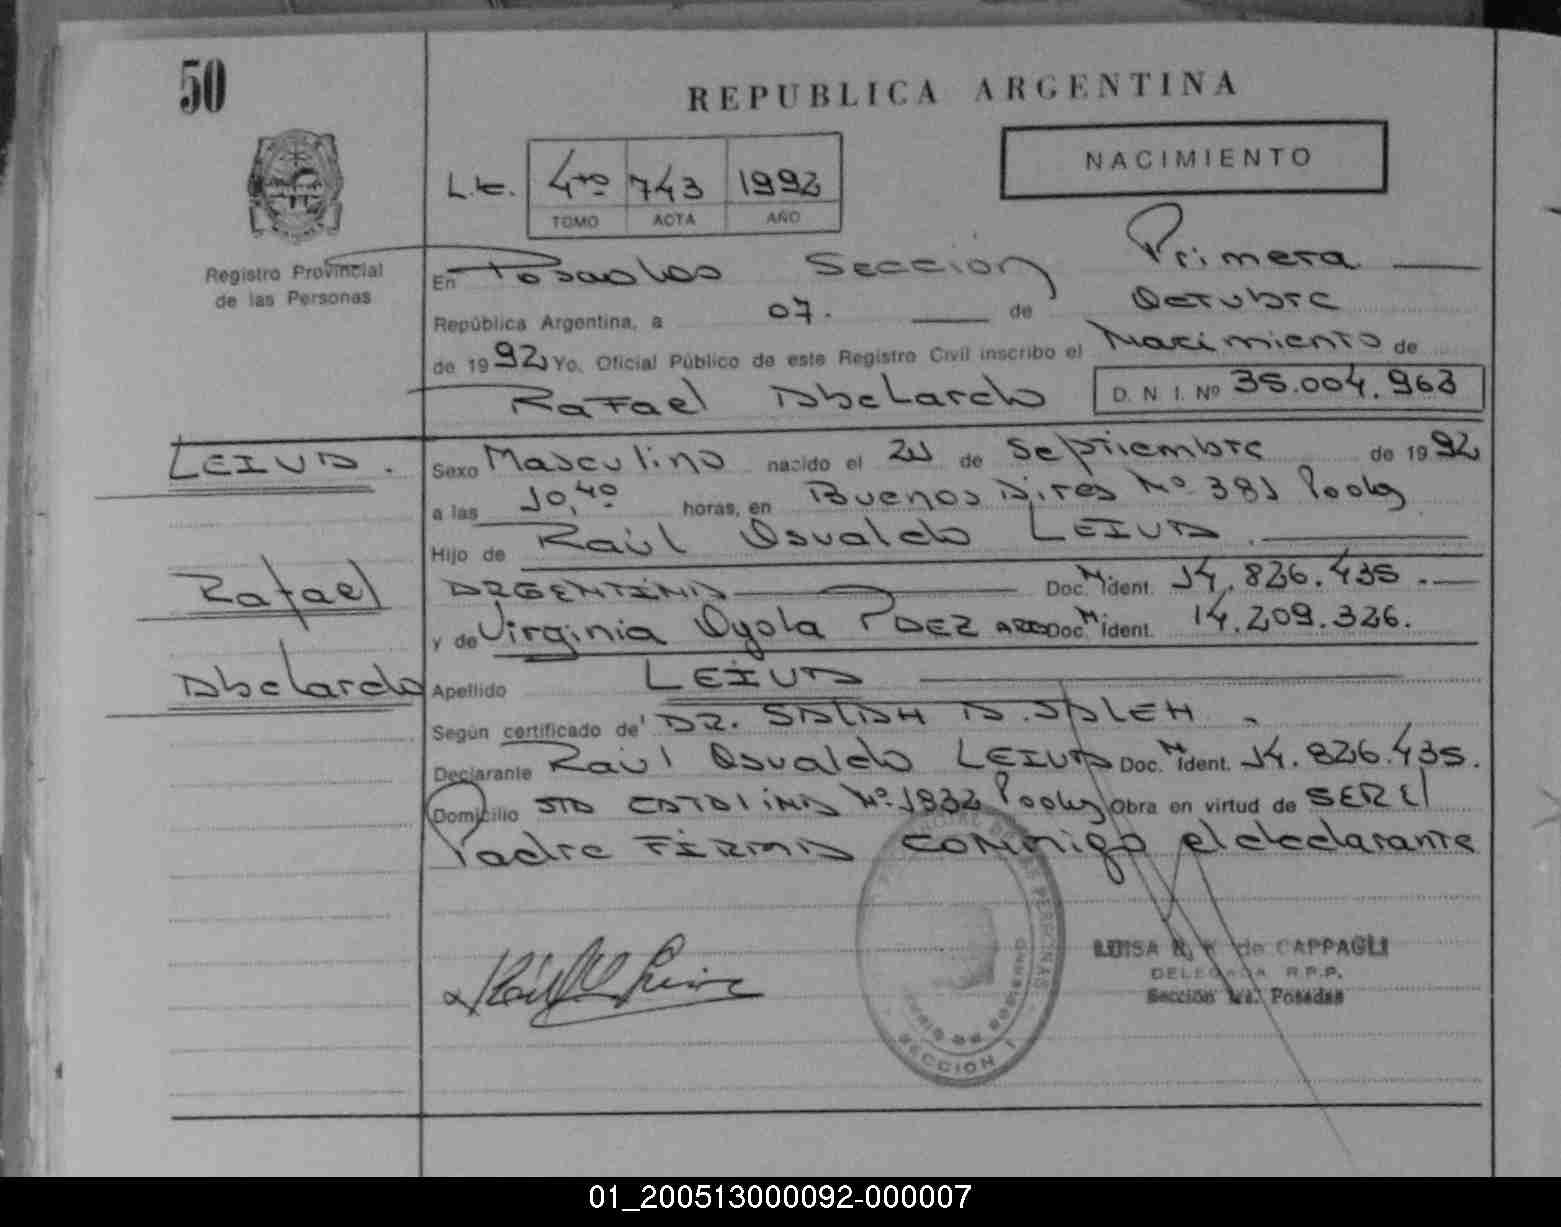 50
REPUBLICA ARGENTINA
NACIMIENTO
L.E. 4to 743 1992
TOMO ACTA AÑO
Registro Provincial
de las Personas
En Posadas Sección Primera
República Argentina, a 07. de Octubre
de 1992 Yo, Oficial Público de este Registro Civil inscribo el Nacimiento de
Rafael Abelardo D. N. I. Nº 35.004.963
LEIVA.
Sexo Masculino nacido el 21 de Septiembre de 1992
a las 10,40 horas, en Buenos Aires Nº 381 Pdas
Hijo de Raúl Osvaldo LEIVA.
Rafael
ARGENTINA Doc. M. Ident. 14.826.435.
y de Virginia Oyola PAEZ ARG Doc. M. Ident. 14.209.326.
Abelardo
Apellido LEIVA
Según certificado de DR. SALAH A. SALEH.
Declarante Raúl Osvaldo LEIVA Doc. M. Ident. 14.826.435.
Domicilio STA CATALINA Nº 1932 Pdas Obra en virtud de SER El
Padre FIRMA conmigo el declarante
LUISA de CAPPAGLI
DELEGADA R.P.P.
Sección 1ra. Posadas
DE LAS PERSONAS
SECCION 1
01_200513000092-000007